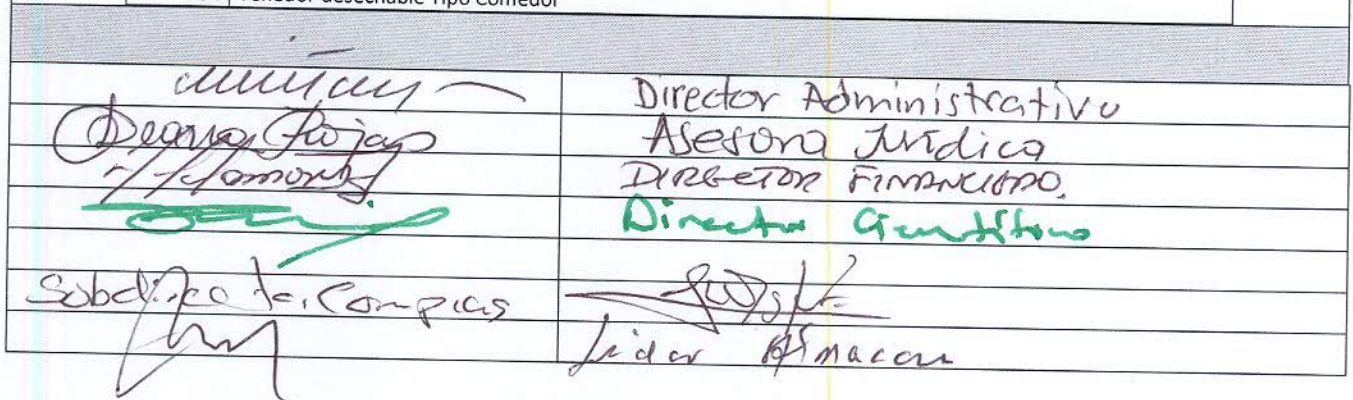 Tenedor desechable Tipo Comedor
Director Administrativo
Deanna Rojas
Asesora Jurídica
DIRECTOR FINANCIERO.
Director Científico
Subdirector Compras
Lider Almacen